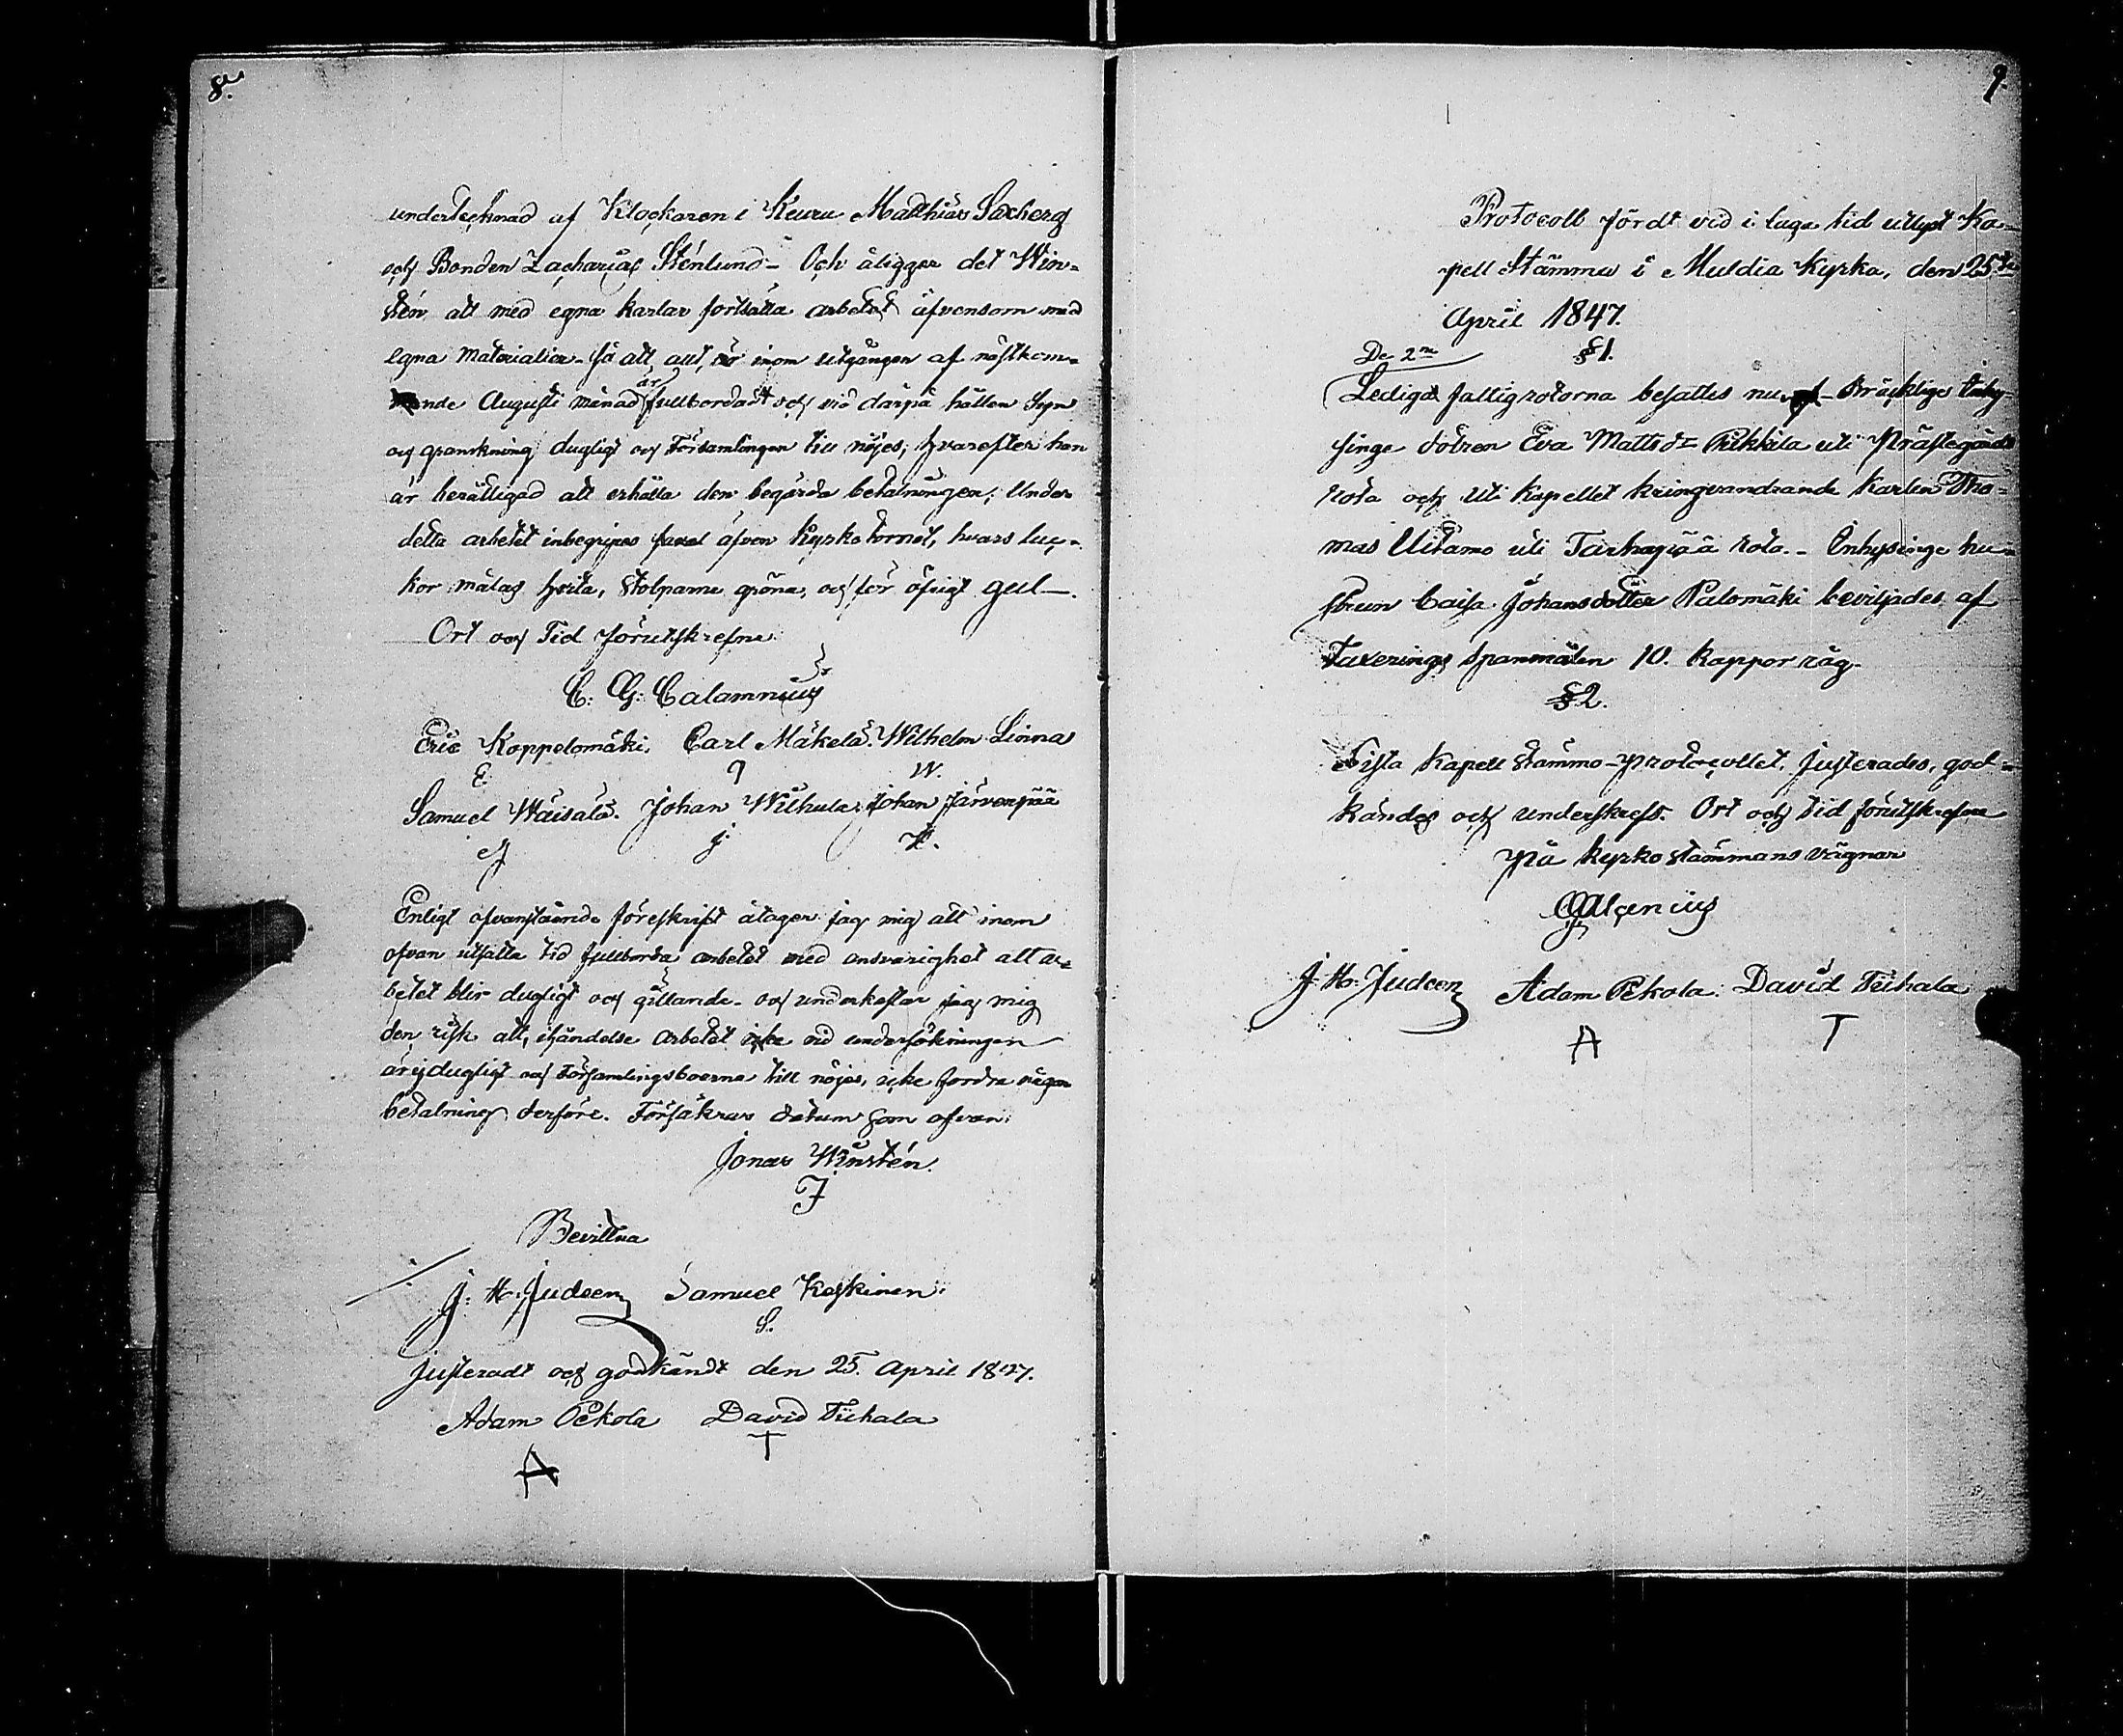 8.
undertecknad af Klockaren i Keuru Matthias Saxberg
och Bonden Zacharias Stenlund - Och åligger det Win-
stén att med egna karlar fortsätta arbetet äfvensom med
egna Materialier - så att allt, inom utgången af nästkom-
mande Augusti månad är fullbordadt och vid därpå hållen Syn
och granskning dugligt och Församlingen till nöjes; hvarefter han
är berättigad att erhålla den begärda betalningen; Under
detta arbetet inbegripes äfven Kyrkotornet, hvars luc-
kor målas hvita, Stolparne gröna, och för öfrigt gul-.
Ort och Tid förutskrefne.
C: G: Calamnius
Eric Koppelomäki. Carl Mäkelä. Wilhelm Linna
E W.
Samuel Wäisälä. Johan Wilhula. Johan Järvenpää
J.
Enligt ofvanstående föreskrift åtager jag mig att inom
ofvan utsatta tid fullborda arbetet med ansvarighet att ar-
betet blir dugligt och gillande - och underkastar jag mig
den risk att, ihändelse arbetet icke vid undersökningen
är ej dugligt och Församlingsboerne till nöjes, icke fordra någon
betalning derföre. Försäkras datum som ofvan.
Jonas Winstén.
J
Bevittna
J. H. Judeen Samuel Keskinen.
S.
Justeradt och godkändt den 25. April 1847.
Adam Pekola David Tiihala
A T
9.
Protocoll fördt vid i laga tid utlyst Ka-
pell Stämma i Muldia Kyrka, den 25te
April 1847.
§1.
De 2ne
Lediga fattigrotorna besattes nu - Bräcklige Inhy-
singe dotren Eva Mattsdr Pikkila uti Prästegårds
rota och uti Kapellet kringvandrande Karlen Tho-
mas Uitamo uti Tarhapää rota. - Inhysinge hu-
strun Caisa Johansdotter Palomäki beviljades af
Taxerings Spanmålen 10. kappor råg.
§2.
Sista Kapell Stämmo-protocollet, justerades, god-
kändes och underskrefs. Ort och tid förutskrefne
på kyrkostämmans vägnar
J. H. Judeen Adam Pekola. David Tiihala
A T